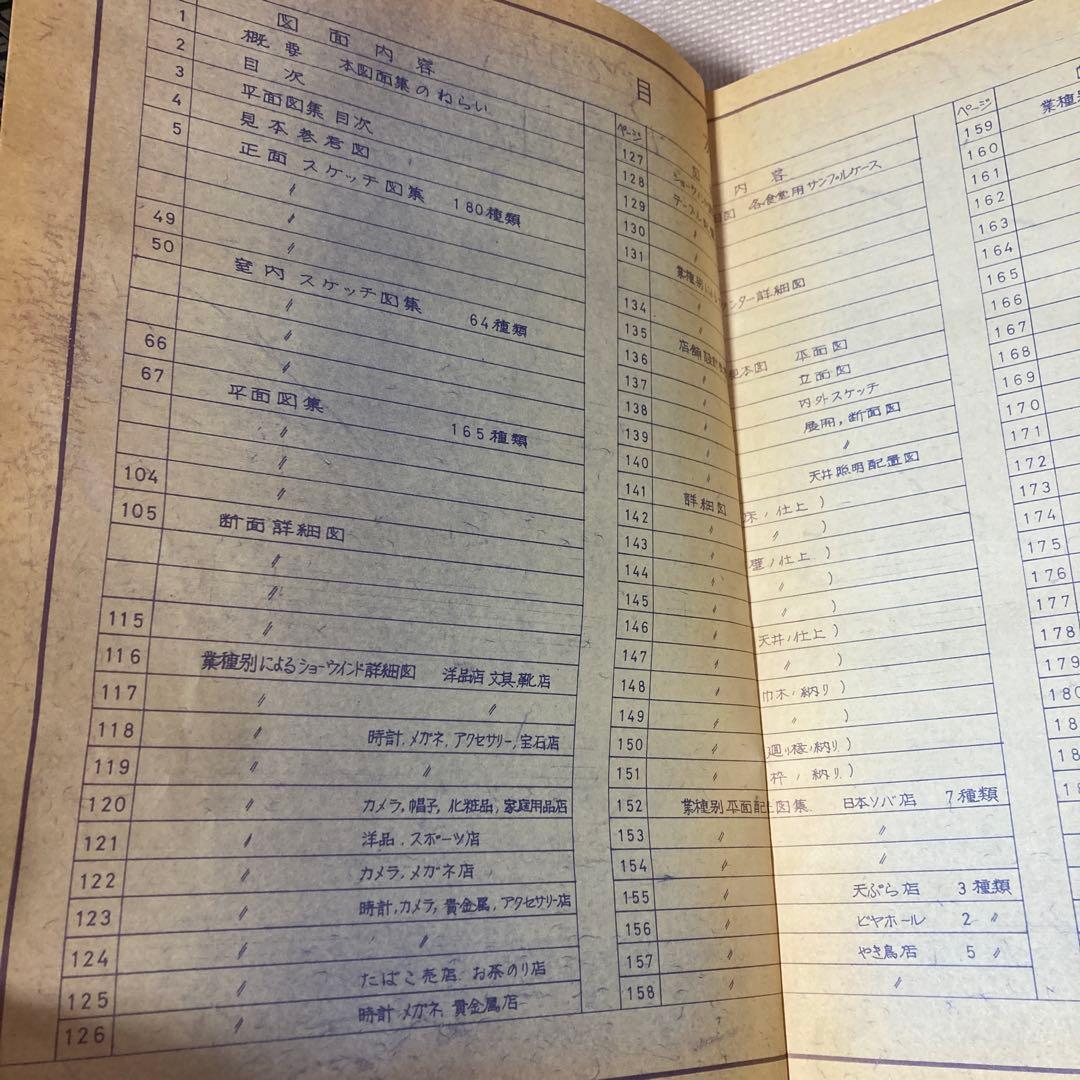 目
図面内容
1 概要 本図面集のねらい
2 目次
3 平面図集目次
4 見本参考図
5 正面スケッチ図集 180種類
〃
〃
49 〃
50 室内スケッチ図集 64種類
〃
〃
66 〃
67 平面図集 165種類
〃
104 〃
105 断面詳細図
〃
〃
115 〃
116 業種別によるショーウインド詳細図 洋品店 文具,靴店
117 〃 〃
118 〃 時計,メガネ,アクセサリー,宝石店
119 〃 〃
120 〃 カメラ,帽子,化粧品,家庭用品店
121 〃 洋品,スポーツ店
122 カメラ,メガネ店
123 〃 時計,カメラ,貴金属,アクセサリー店
124 〃 〃
125 〃 たばこ売店 お茶のり店
126 〃 時計 メガネ 貴金属店
ページ 内容
127 ショーウイン 図 各食堂用サンプルケース
128 テーブル
129 〃
130 〃
131 業種別による ンター詳細図
〃
134 〃
135 店舗設計 見本図 平面図
136 〃 立面図
137 〃 内外スケッチ
138 〃 展開,断面図
139 〃 〃
140 〃 天井照明配置図
141 詳細図 床ノ仕上)
142 〃 〃 )
143 〃 壁ノ仕上)
144 〃 〃 )
145 〃 〃 )
146 〃 天井ノ仕上)
147 〃 〃 )
148 〃 巾木ノ納り)
149 〃 〃 )
150 〃 廻り縁ノ納り)
151 〃 枠ノ納り)
152 業種別平面配 図集 日本ソバ店 7種類
153 〃 〃
154 〃 〃
155 〃 天ぷら店 3種類
156 〃 ビヤホール 2 〃
157 〃 やき鳥店 5 〃
158 〃 〃
ページ
159 業種別
160
161
162
163
164
165
166
167
168
169
170
171
172
173
174
175
176
177
178
179
180